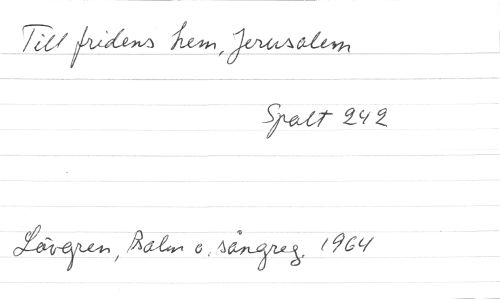 Till fridens hem, Jerusalem
Spalt 242
Lövgren, Psalm o. sångreg. 1964